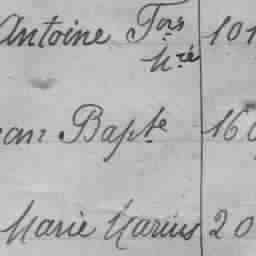 Antoine Fois 101
Hré
Jean Bapte 160
Marie Marius 20